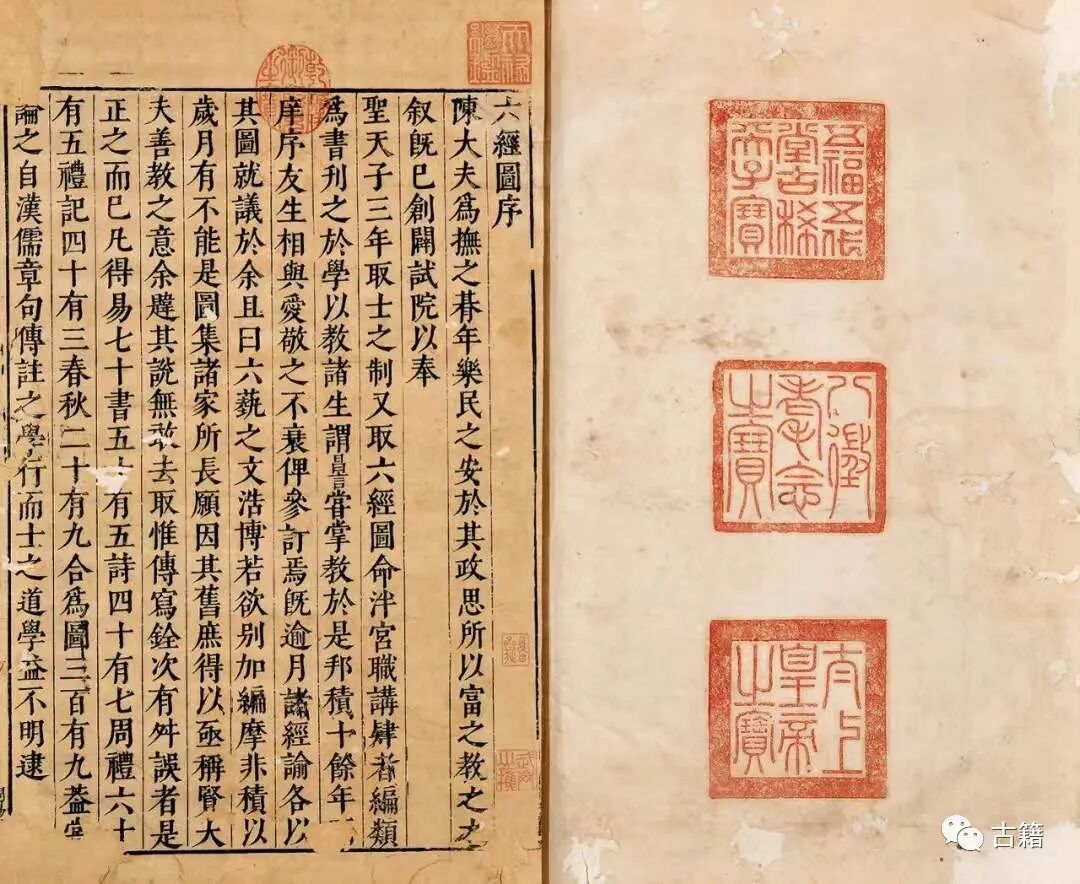 五福五代
堂古稀
天子寶
八徵
耄念
之寶
太上
皇帝
之寶
天祿
繼鑑
乾隆
御覽
之寶
六經圖序
陳大夫爲撫之朞年樂民之安於其政思所以富之教之之
叙既已創闢試院以奉
聖天子三年取士之制又取六經圖命泮宮職講肄者編類
爲書刊之於學以教諸生謂昌言甞掌教於是邦積十餘年
庠序友生相與愛敬之不衰俾參訂焉既逾月諸經論各以
其圖就議於余且曰六藝之文浩博若欲别加編摩非積以
歲月有不能是圖集諸家所長願因其舊庶得以亟稱賢大
夫善教之意余韙其說無敢去取惟傳寫銓次有舛誤者是
正之而已凡得易七十書五十有五詩四十有七周禮六十
有五禮記四十有三春秋二十有九合爲圖三百有九葢甞
論之自漢儒章句傳註之學行而士之道學益不明逮
古籍